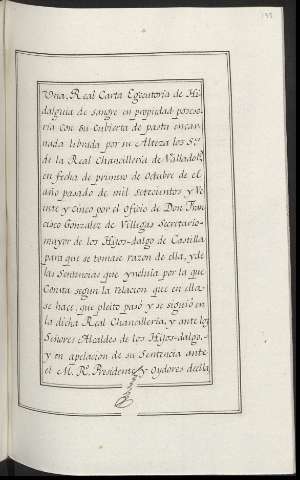 Vna, Real Carta Egecutoria de Hi-
dalguia de sangre en propiedad poseso-
ria con su Cubierta de pasta encar-
nada librada por su Alteza los S.res
de la Real Chancilleria de Valladolid
en fecha de primero de Octubre de el
año pasado de mil setecientos y Ve-
inte y cinco por el oficio de Don Fran-
cisco Gonzalez de Villegas Secretario-
mayor de los Hijos-dalgo de Castilla
para que se tomase razon de ella, y de
las Sentencias que y por la que
Consta segun la relacion que en ella-
se hace, que pleito pasò y se siguiò en
la dicha Real Chancilleria, y ante los
Señores Alcaldes de los Hijos-dalgo,-
y en apelacion de su Sentencia ante
el M. R. Presidente y oydores deella